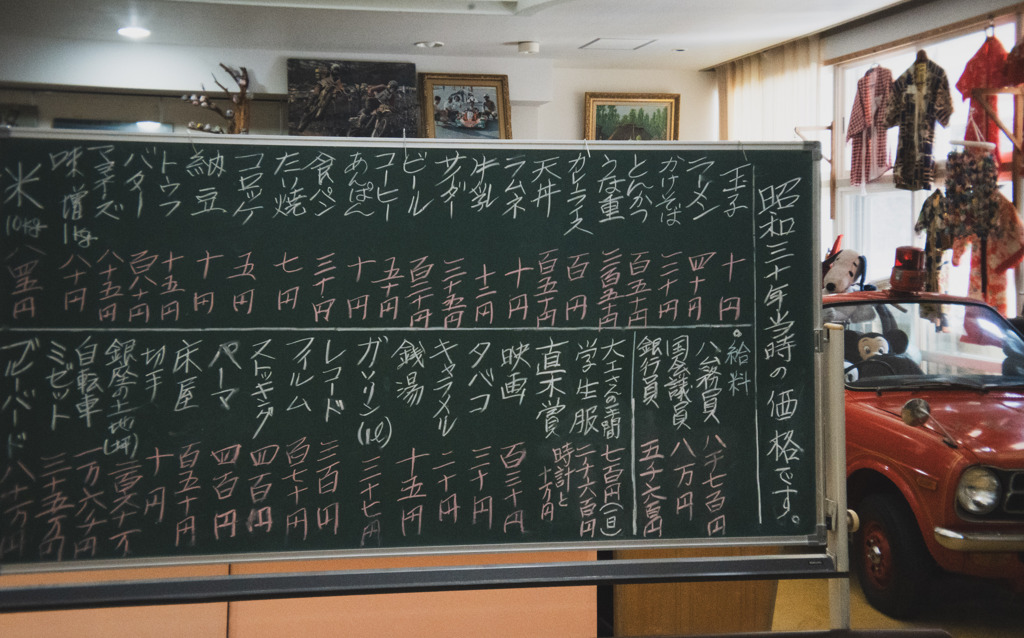 昭和三十年当時の価格です。
玉子 十円
ラーメン 四十円
かけそば 二十円
とんかつ 百五十円
うな重 二百五十円
カレーライス 百円
天丼 百五十円
ラムネ 十円
牛乳 十二円
サイダー 三十五円
ビール 百二十円
コーヒー 五十円
あんぱん 十円
食パン 三十円
たい焼 七円
コロッケ 五円
納豆 十円
トウフ 十五円
バター 百八十円
マヨネーズ 八十五円
味噌1kg 八十円
米10kg 八四五円
。給料
公務員 八千七百円
国会議員 八万円
銀行員 五千六百円
大工さんの手間 七百円(一日)
学生服 二千六百円
直木賞 時計と十万円
映画 百三十円
タバコ 三十円
キャラメル 二十円
銭湯 十五円
ガソリン(1ℓ) 三十七円
レコード 三百円
フィルム 百七十円
ストッキング 四百円
パーマ 四百円
床屋 百五十円
切手 十円
銀座の土地(坪)
自転車 一万六千円
ミゼット 二十五万円
ブルーバード